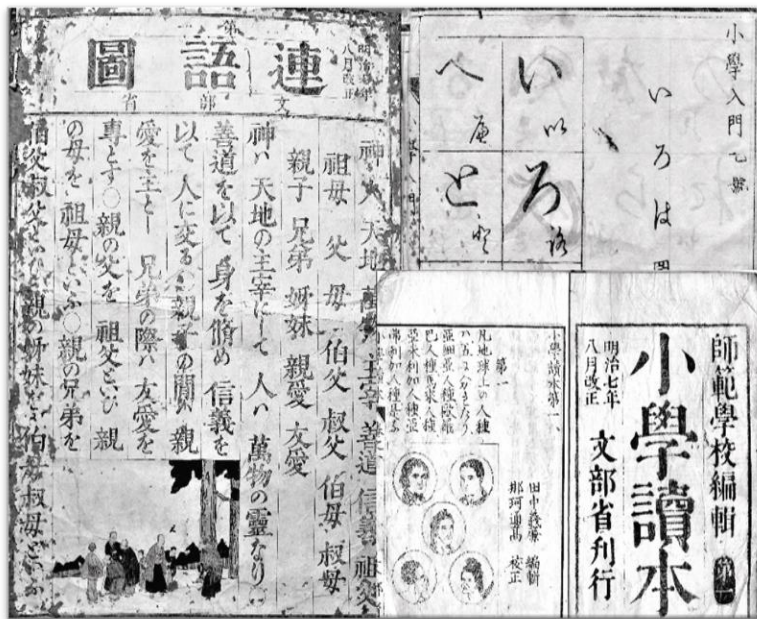 第
連語圖
明治七年
八月改正
文部省
神 人 天地 萬物 主宰 善道 信義 祖父
祖母 父 母 伯父 叔父 伯母 叔母
親子 兄弟 姊妹 親愛 友愛
神ハ 天地の主宰にして 人ハ 萬物の靈なり○
善道を以て 身を脩め 信義を
以て 人に交る○親子の間ハ 親
愛を主とし 兄弟の際ハ 友愛を
專とす○親の父を 祖父といひ 親
の母を 祖母といふ○親の兄弟を
伯父叔父といひ 親の姊妹を 伯母叔母といふ
小學入門乙號
いろは圖
い 以
ろ 路
へ
と 登
師範學校編輯
小學讀本
明治七年
八月改正
文部省刊行
小學讀本第一
田中義廉 編輯
那珂通高 校正
第一
凡地球上の人種
ハ五つに分れたり
亞細亞人種歐羅
巴人種馬來人種
亞米利加人種亞
弗利加人種是なり